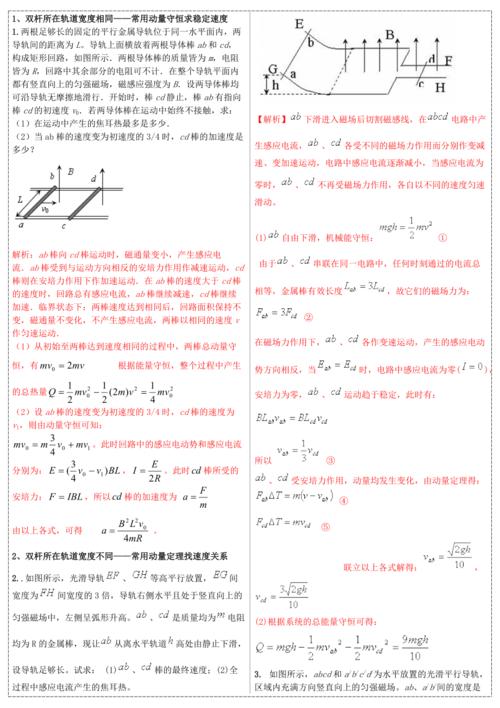 1、双杆所在轨道宽度相同——常用动量守恒求稳定速度
1.两根足够长的固定的平行金属导轨位于同一水平面内，两
导轨间的距离为 L。导轨上面横放着两根导体棒 ab 和 cd，
构成矩形回路，如图所示．两根导体棒的质量皆为 m，电阻
皆为 R，回路中其余部分的电阻可不计．在整个导轨平面内
都有竖直向上的匀强磁场，磁感应强度为 B．设两导体棒均
可沿导轨无摩擦地滑行．开始时，棒 cd 静止，棒 ab 有指向
棒 cd 的初速度 v0．若两导体棒在运动中始终不接触，求：
（1）在运动中产生的焦耳热最多是多少．
（2）当 ab 棒的速度变为初速度的 3/4 时，cd 棒的加速度是
多少？
b B d
L
v0
a c
解析：ab 棒向 cd 棒运动时，磁通量变小，产生感应电
流．ab 棒受到与运动方向相反的安培力作用作减速运动，cd
棒则在安培力作用下作加速运动．在 ab 棒的速度大于 cd 棒
的速度时，回路总有感应电流，ab 棒继续减速，cd 棒继续
加速．临界状态下：两棒速度达到相同后，回路面积保持不
变，磁通量不变化，不产生感应电流，两棒以相同的速度 v
作匀速运动．
（1）从初始至两棒达到速度相同的过程中，两棒总动量守
恒，有 mv0 = 2mv 根据能量守恒，整个过程中产生
的总热量 Q = 1/2 mv0² − 1/2 (2m)v² = 1/4 mv0²
（2）设 ab 棒的速度变为初速度的 3/4 时，cd 棒的速度为
v1，则由动量守恒可知：
mv0 = m 3/4 v0 + mv1。此时回路中的感应电动势和感应电流
分别为：E = (3/4 v0 − v1)BL，I = E/2R。此时 cd 棒所受的
安培力：F = IBL，所以 cd 棒的加速度为 a = F/m
由以上各式，可得 a = B²L²v0/4mR 。
2、双杆所在轨道宽度不同——常用动量定理找速度关系
2. .如图所示，光滑导轨 EF 、 等高平行放置， EG 间
宽度为 FH 间宽度的 3 倍，导轨右侧水平且处于竖直向上的
匀强磁场中，左侧呈弧形升高。 ab 、 cd 是质量均为 m 电阻
均为 R 的金属棒，现让 ab 从离水平轨道 h 高处由静止下滑，
设导轨足够长。试求： (1) ab 、 cd 棒的最终速度；(2)全
过程中感应电流产生的焦耳热。
E
b B
F
G a d
h c H
【解析】 ab 下滑进入磁场后切割磁感线，在 abcd 电路中产
生感应电流， ab 、 cd 各受不同的磁场力作用而分别作变减
速、变加速运动，电路中感应电流逐渐减小，当感应电流为
零时， ab 、 cd 不再受磁场力作用，各自以不同的速度匀速
滑动。
(1) ab 自由下滑，机械能守恒： mgh = 1/2 mv² ①
由于 ab 、 cd 串联在同一电路中，任何时刻通过的电流总
相等，金属棒有效长度 Lab = 3Lcd ，故它们的磁场力为：
Fab = 3Fcd ②
在磁场力作用下， ab 、 cd 各作变速运动，产生的感应电动
势方向相反，当 Eab = Ecd 时，电路中感应电流为零( I = 0 )，
安培力为零， ab 、 cd 运动趋于稳定，此时有：
BLabvab = BLcdvcd
所以 vab = 1/3 vcd ③
ab 、 cd 受安培力作用，动量均发生变化，由动量定理得：
FabΔT = m(v − vab) ④
FcdΔT = mvcd ⑤
联立以上各式解得： vab = √2gh/10 ，
vcd = 3√2gh/10
(2)根据系统的总能量守恒可得：
Q = mgh − 1/2 mvab² − 1/2 mvcd² = 9mgh/10
3. 如图所示，abcd 和 a′b′c′d′为水平放置的光滑平行导轨，
区域内充满方向竖直向上的匀强磁场。ab、a′b′间的宽度是